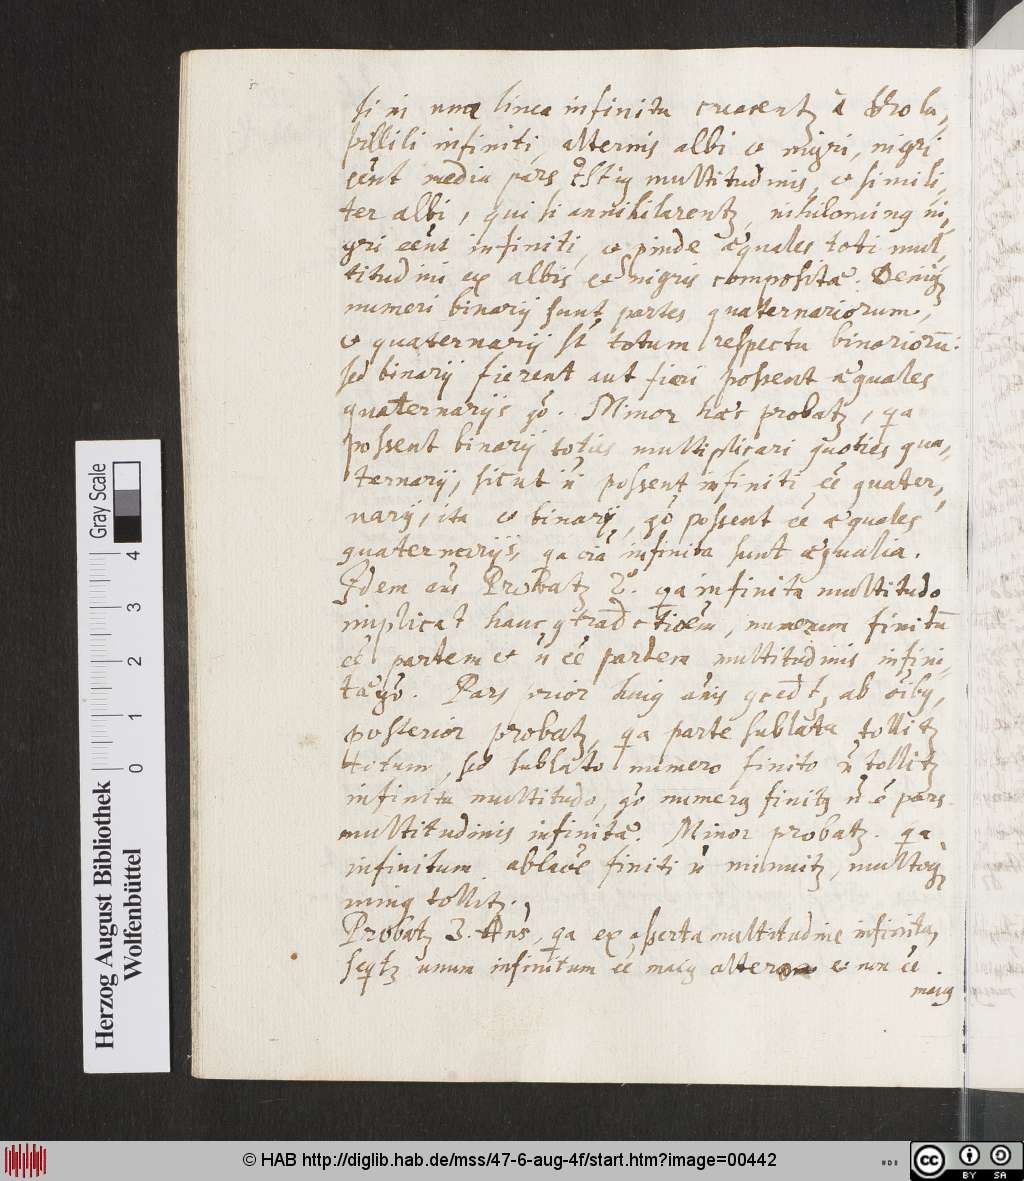 si in una linea infinita crearent a
pissilli infiniti alternis albi et nigri, nigri
eent media pars istiq multitudinis, et simili,
ter albi, qui si annihilarent, nihilominq ni,
gri eent infiniti, et æquales toti mul,
titudini ex albis et nigris compositæ. Deniq
numeri binarij sunt partes quaternariorum,
et quaternarij st totum respectu binariorū.
sed binarij fierent aut fieri possent æquales
quaternarijs go. Minor hæc probatz, qa
possent binarij toties multiplicari quoties qua,
ternarij, sicut n possent infiniti ee quater,
narij, ita et binarij, go possent ee æquales
quaternarijs, qa oia infinita sunt æqualia.
Idem ans Probatz 2°. qa infinita multitudo
implicat hanc gtradctioem, numerum finitū
ee partem et n ee partem multitudinis infini,
tæ go. Pars prior huiq anis gcedt ab oibq,
posterior probatz, qa parte sublata tollitz
totum, sed sublato numero finito n tollitz
infinita multitudo, go numerq finitq n e pars
multitudinis infinitæ. Minor probatz. qa
infinitum ablaoe finiti n minuitz, multoq
minq tollitz.
Probatz 3. Ans, qa ex asserta multitudine infinita,
seqtz unum infinitum ee maiq altero et non ee
maiq
Herzog August Bibliothek
Wolfenbüttel
Gray Scale
0 1 2 3 4
© HAB http://diglib.hab.de/mss/47-6-aug-4f/start.htm?image=00442
cc BY SA